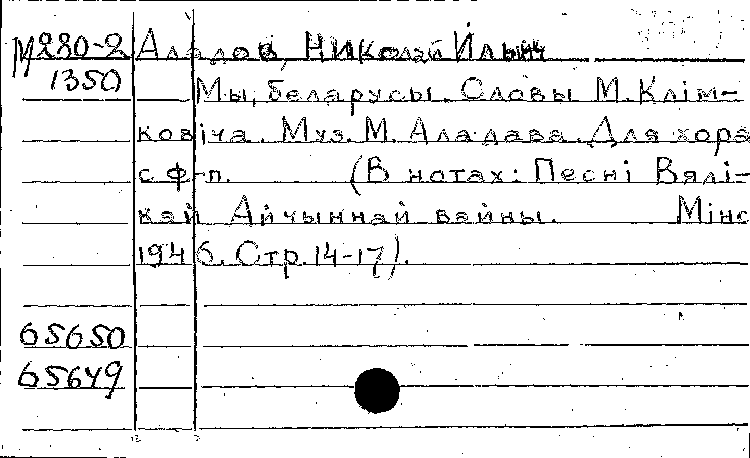 М280-2 Аладов, Николай Ильич
1350 Мы, беларусы. Словы М. Клім-
ковіча. Муз. М. Аладава. Для хора
с ф-п. (В нотах: Песні Вялі-
кай Айчыннай вайны. Мінс
1946. Стр. 14-17).
65650
65649